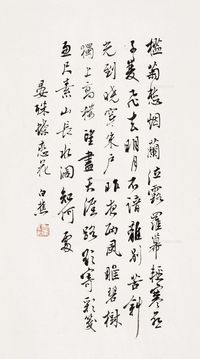 檻菊愁烟蘭泣露羅幕輕寒燕
子雙飛去明月不諳離別苦斜
光到曉穿朱户昨夜西風雕碧樹
獨上高樓望盡天涯路欲寄彩箋
尺素山長水闊知何處
晏殊蝶恋花 白蕉